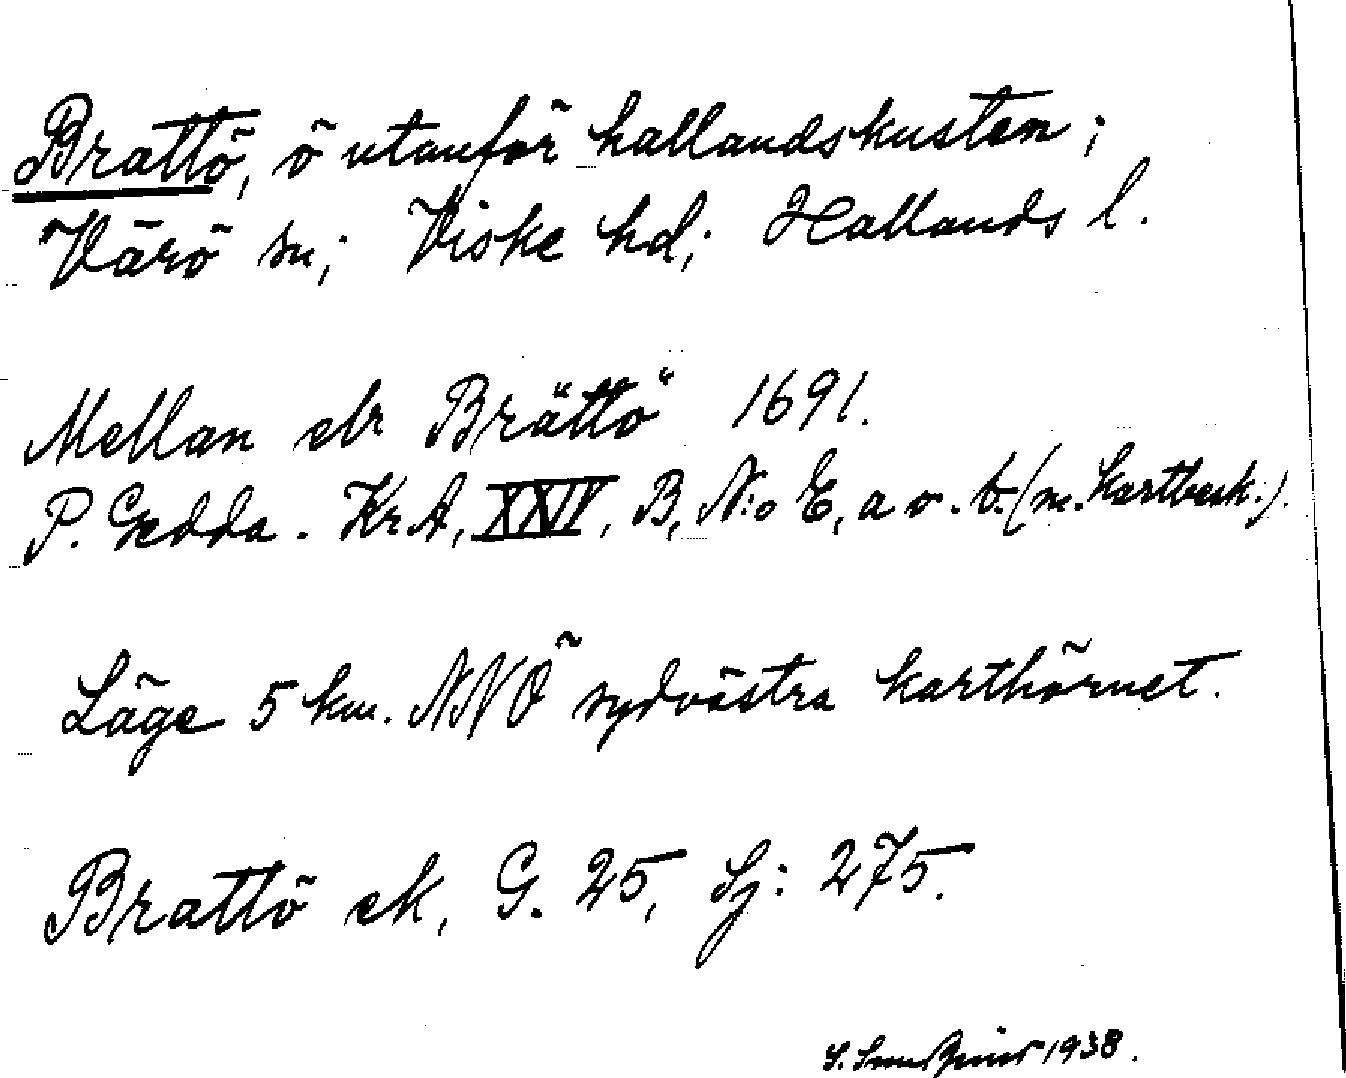 Brattö, ö utanför hallandskusten;
Värö sn; Viske hd; Hallands l.
Mellan elr Brättö 1691.
P. Gedda. Kr A, XXIV, B, N:o E, a o. b. (m. kartbesk.).
Läge 5 km. NNÖ sydvästra karthörnet.
Brattö ek, G. 25, Sj: 275.
S. 1938.